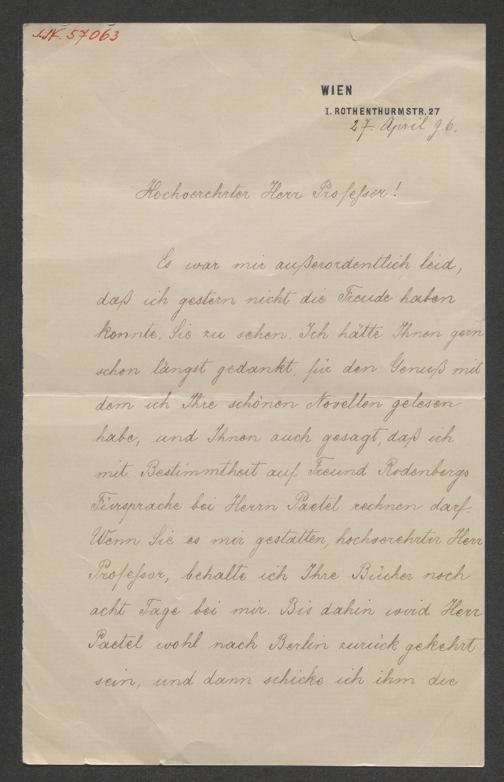 I.N. 57063
WIEN
I. ROTHENTHURMSTR. 27
27. April 96.
Hochverehrter Herr Professor!
Es war mir außerordentlich leid,
daß ich gestern nicht die Freude haben
konnte, Sie zu sehen. Ich hätte Ihnen gern
schon längst gedankt, für den Genuß mit
dem ich Ihre schönen Novellen gelesen
habe, und Ihnen auch gesagt, daß ich
mit Bestimmtheit auf Freund Rodenbergs
Fürsprache bei Herrn Paetel rechnen darf.
Wenn Sie es mir gestatten, hochverehrter Herr
Professor, behalte ich Ihre Bücher noch
acht Tage bei mir. Bis dahin wird Herr
Paetel wohl nach Berlin zurück gekehrt
sein, und dann schicke ich ihm die